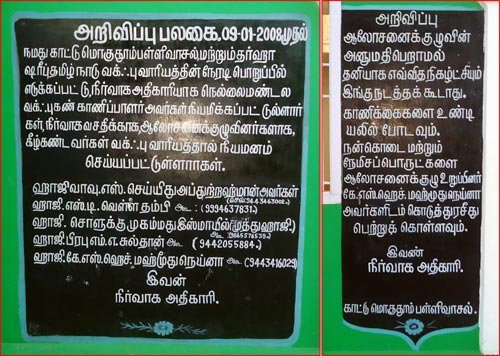 அறிவிப்பு பலகை.09-01-2008முதல்
நமது காட்டு மொகுதூம்பள்ளிவாசல்மற்றும்தர்ஹா
ஷரீப்தமிழ் நாடு வக்ஃபு வாரியத்தின் நேரடி பொறுப்பில்
எடுக்கப்பட்டு,நிர்வாக அதிகாரியாக நெல்லைமண்டல
வக்ஃபுகண் காணிப்பாளர் அவர்கள் நியமிக்கப்பட்டுள்ளார்
கள்,நிர்வாக வசதிக்காக,ஆலோசனைக்குழுவினர்களாக,
கீழ்கண்டவர்கள் வக்ஃபு வாரியத்தால் நியமனம்
செய்யப்பட்டுள்ளார்கள்.
ஹாஜிவாவு.எஸ். செய்யிதுஅப்துற்றஹ்மான்அவர்கள்
ஹாஜி. எஸ்.டி. வெள்ளைதம்பி (9994637831)
ஹாஜி. சொளுக்குமுகம்மதுஇஸ்மாயில்(முத்துஹாஜி)
ஹாஜி.பிரபு.எம்.ஏ.சுல்தான் (9442055884)
ஹாஜி.கே.எஸ்.ஹெச்.மஹ்மூதுநெய்னா (9443416029)
இவன்
நிர்வாக அதிகாரி.
அறிவிப்பு
ஆலோசனைக்குழுவின்
அனுமதிபெறாமல்
தனியாக எவ்வித நிகழ்ச்சியும்
இங்குநடத்தக் கூடாது.
காணிக்கைகளை உண்டி
யலில் போடவும்.
நன்கொடை மற்றும்
நேமிசப்பொருட்களை
ஆலோசனைக்குழுஉறுப்பினர்
கே.எஸ்.ஹெச்.மஹ்மூதுநெய்னா
அவர்களிடம் கொடுத்துரசீது
பெற்றுக் கொள்ளவும்.
இவண்
நிர்வாக அதிகாரி.
காட்டு மொகுதூம் பள்ளிவாசல்.